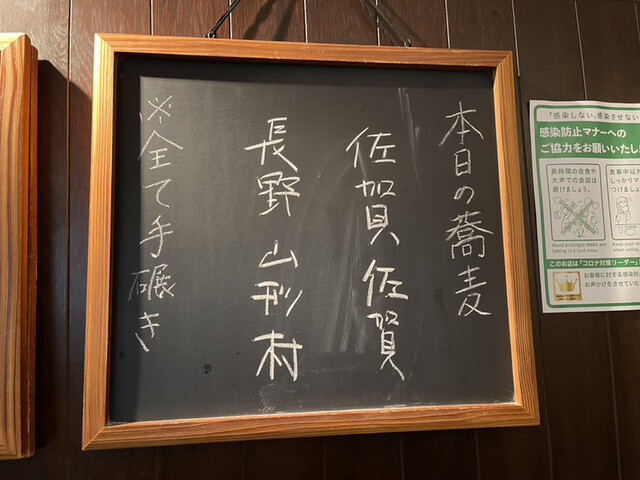 本日の蕎麦
佐賀 佐賀
長野 山形村
※全て手碾き
「感染しない、感染させない
感染防止マナーへの
ご協力をお願いいたしま
長時間の会食や
大声での会話は
避けましょう。
Avoid prolonged meals and
talking in a loud voice.
食事中以外
しっかりマ
つけましょ
Keep your m
when eating
このお店は「コロナ対策リーダー」
お客様に対する感染防
お声がけをさせていた